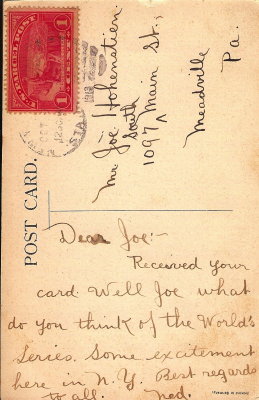 U.S. PARCEL POST
1 CENT 1
POST CARD.
Mr Joe Hohenstien
South
1097 ^ Main St.,
Meadville
Pa.
Dear Joe:-
Received your
card. Well Joe what
do you think of the World's
Series. Some excitement
here in N.Y. Best regards
to all. Ned.